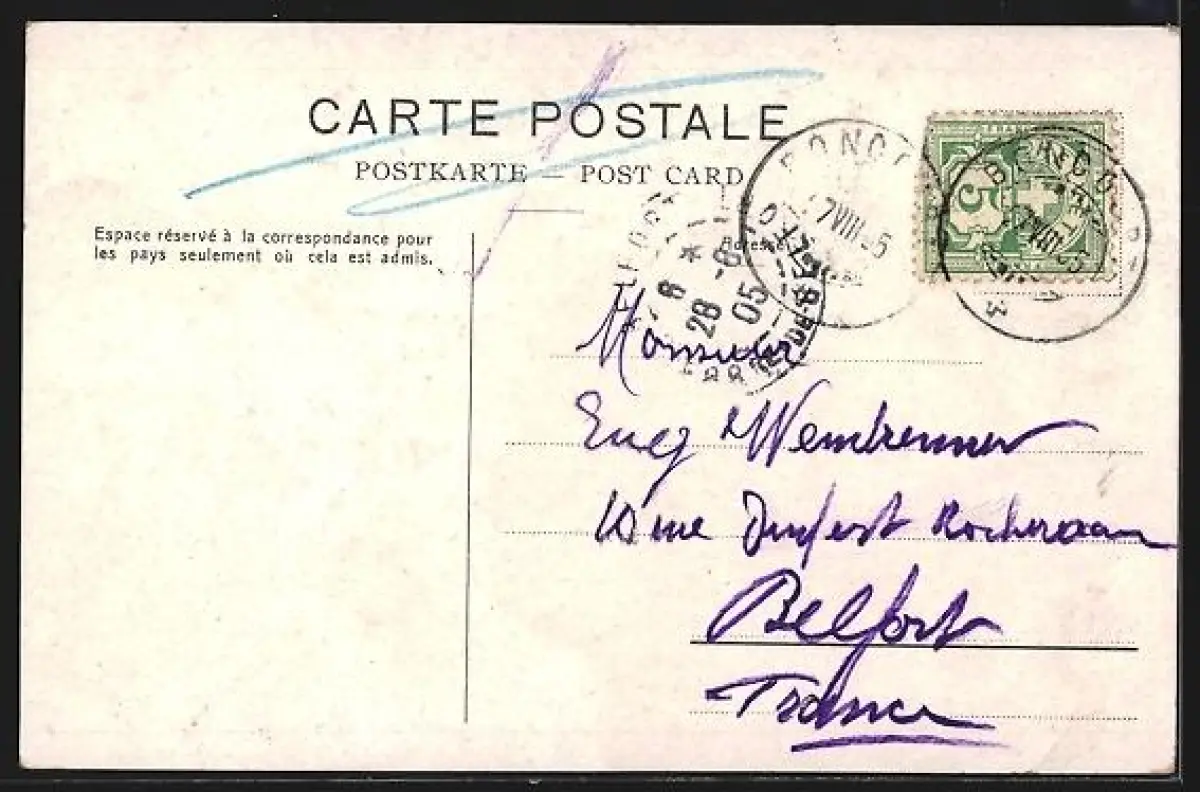 CARTE POSTALE
POSTKARTE — POST CARD
Espace réservé à la correspondance pour
les pays seulement où cela est admis.
Adresse
5
8
28 -8
05
Monsieur
Eug
10 rue Denfert Rochereau
Belfort
France